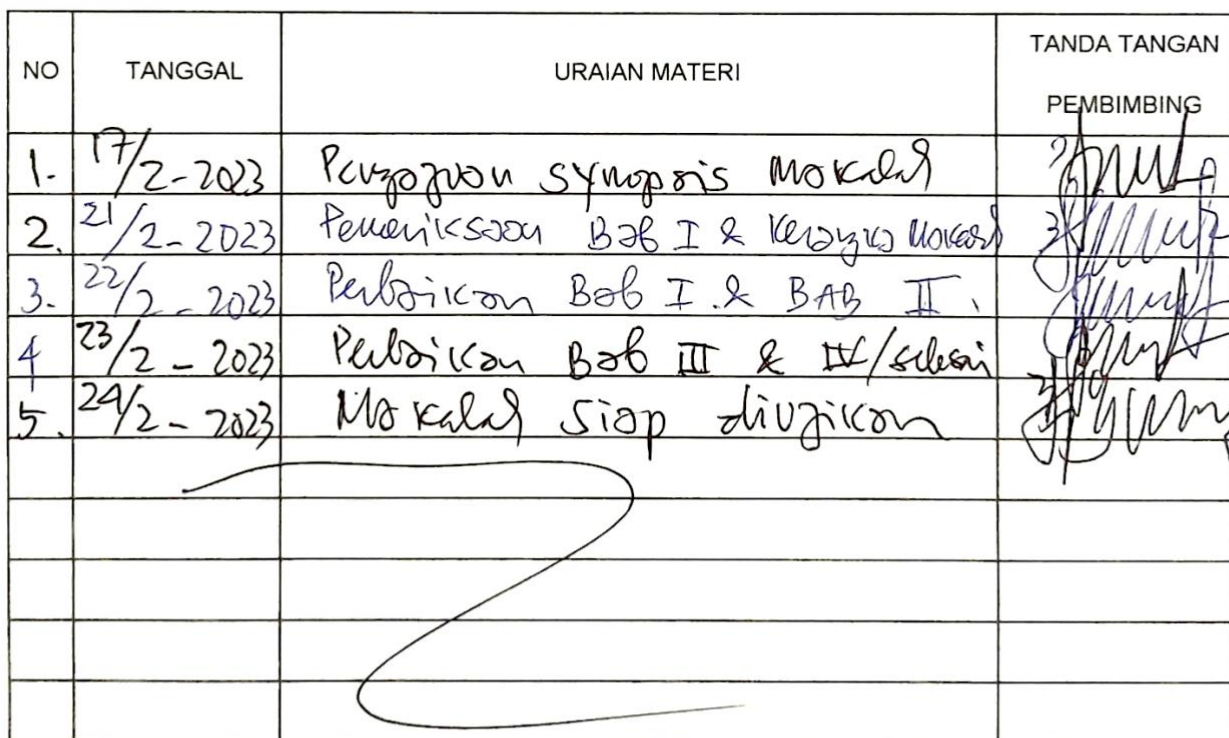 NO TANGGAL URAIAN MATERI TANDA TANGAN PEMBIMBING
1. 17/2-2023 Pengajuan synopsis Makalah
2. 21/2-2023 Pemeriksaan Bab I & Kerangka Makalah
3. 22/2-2023 Perbaikan Bab I & BAB II.
4 23/2-2023 Perbaikan Bab III & IV/selesai
5. 24/2-2023 Makalah siap diujikan